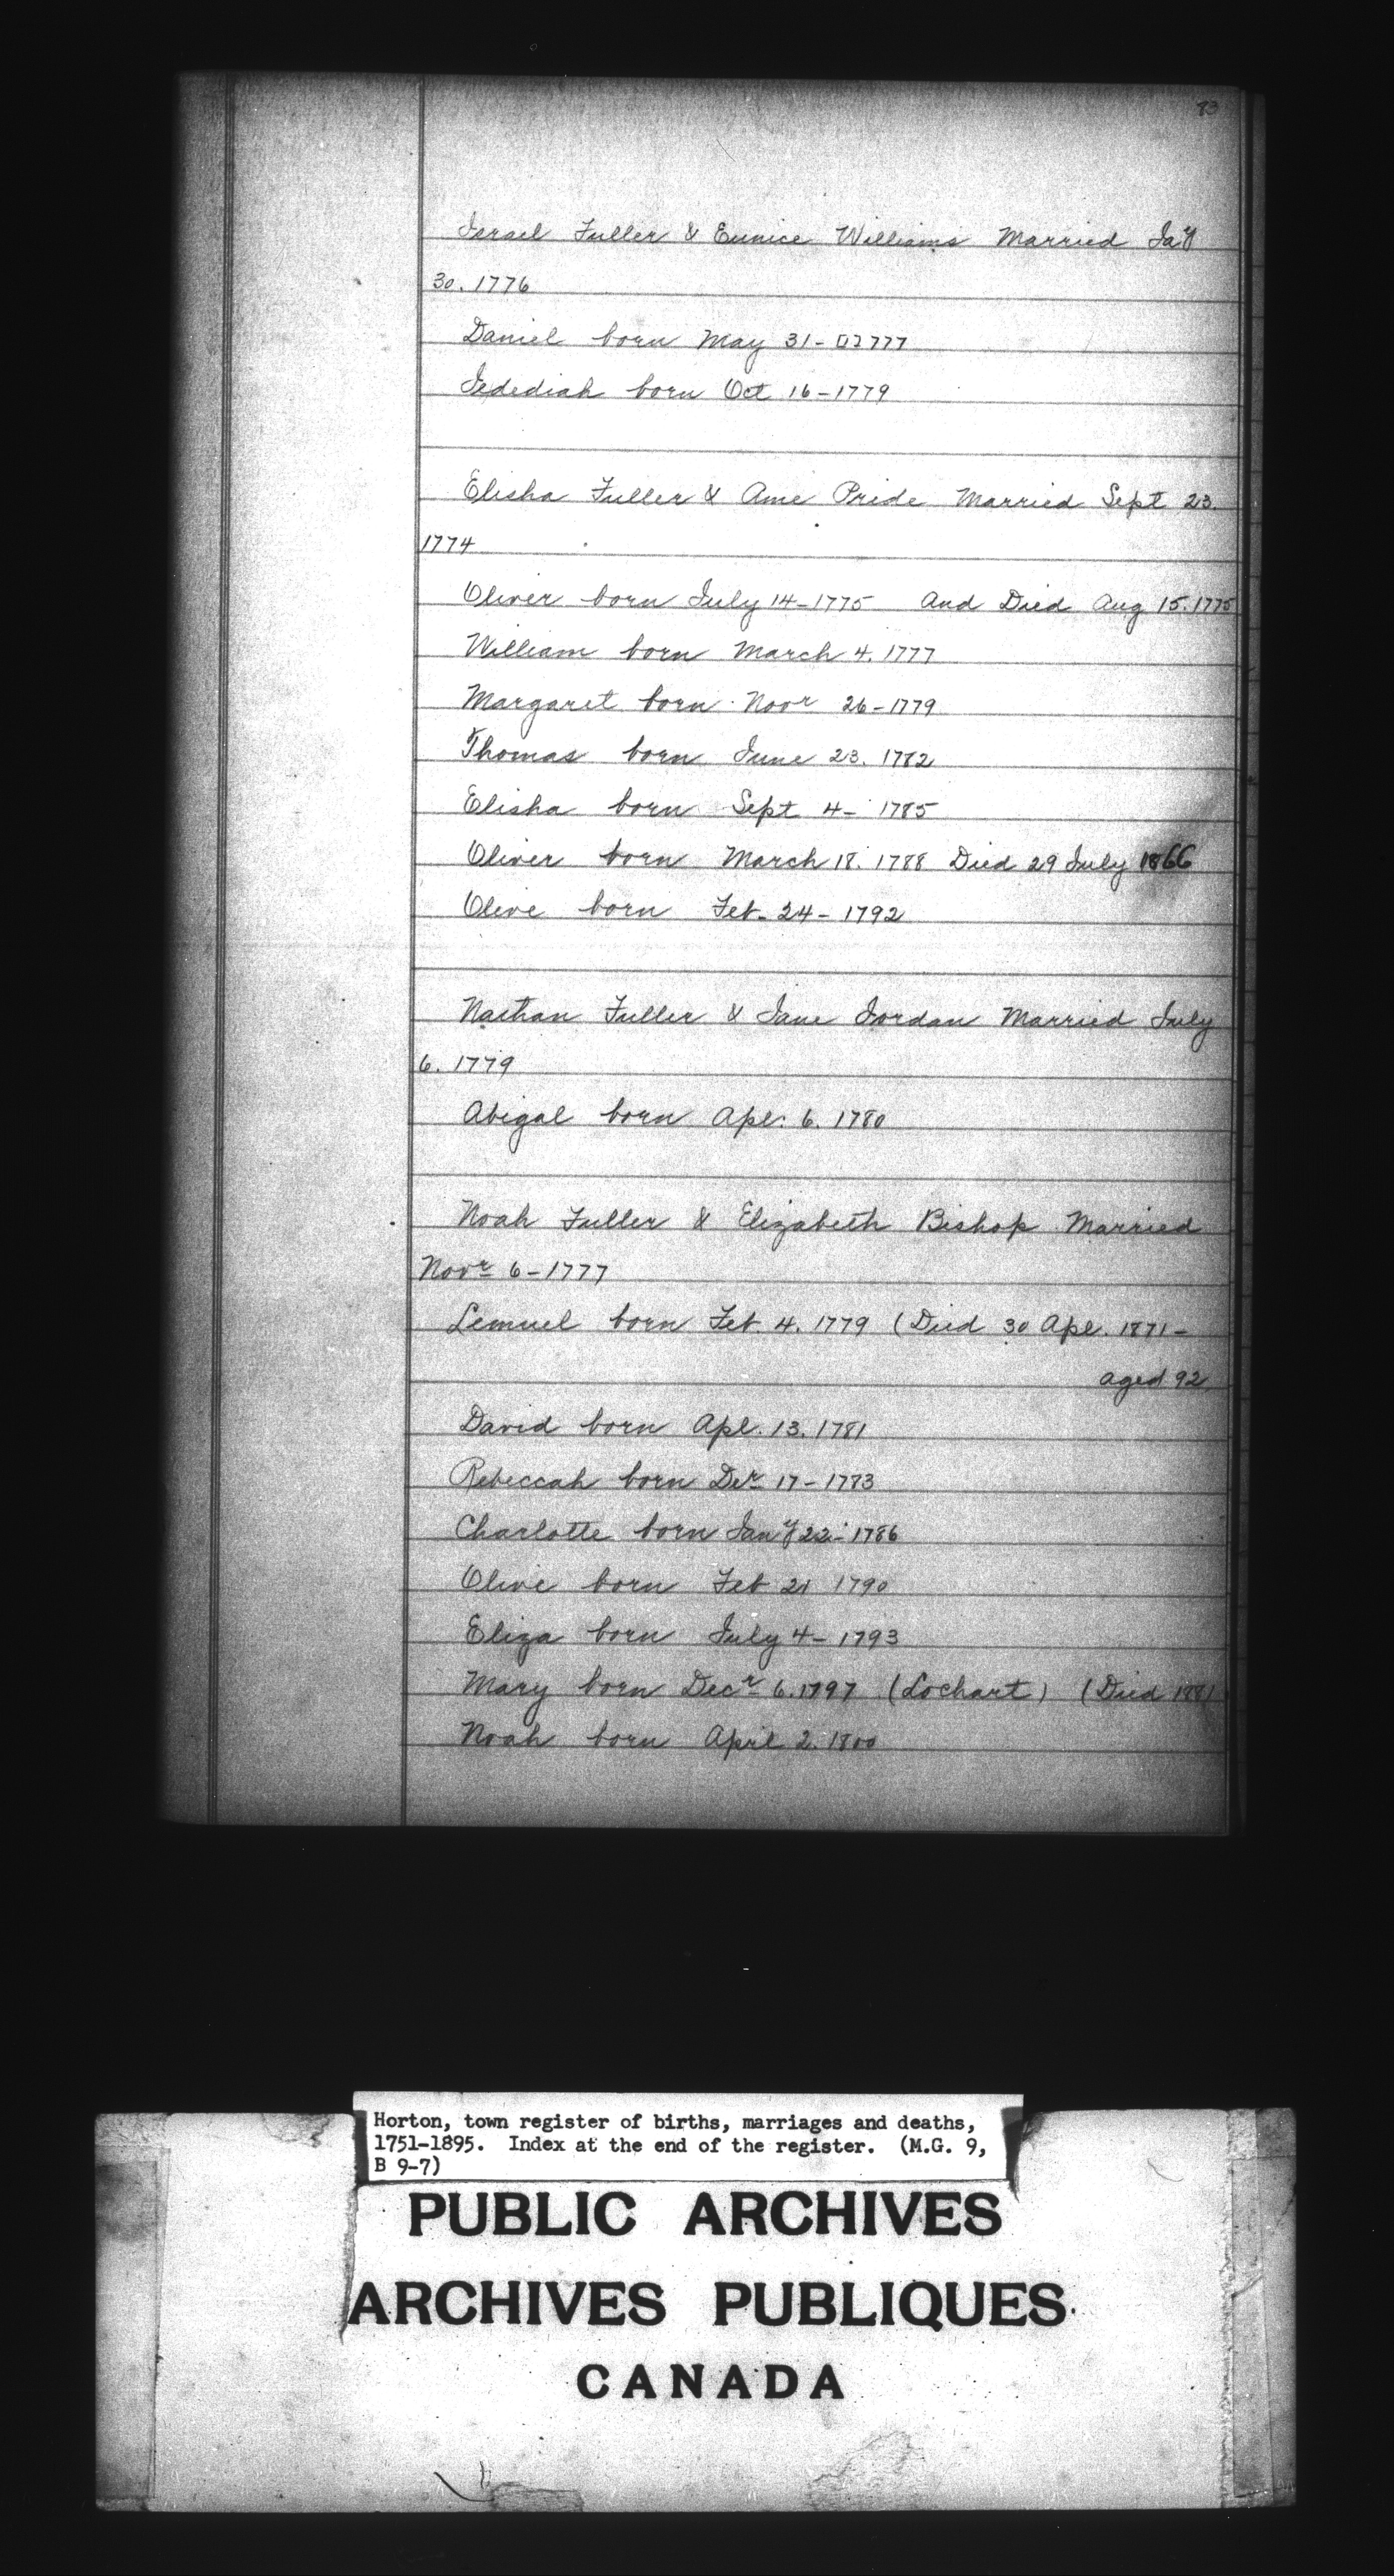 93
Israel Fuller & Eunice Williams Married Jay
30. 1776
Daniel born May 31 - 1777
Jedediah born Oct 16 - 1779
Elisha Fuller & Ame Pride Married Sept 23.
1774
Oliver born July 14 - 1775 And Died Aug 15. 1775
William born March 4. 1777
Margaret born Novr 26 - 1779
Thomas born June 23. 1782
Elisha born Sept 4 - 1785
Oliver born March 18. 1788 Died 29 July 1866
Olive born Feb. 24 - 1792
Nathan Fuller & Jane Jordan Married July
6. 1779
Abigal born Apl. 6. 1780
Noah Fuller & Elizabeth Bishop Married
Novr 6 - 1777
Lemuel born Feb. 4. 1779 (Died 30 Apl. 1871 -
aged 92
David born Apl. 13. 1781
Rebeccah born Der 17 - 1783
Charlotte born Jany 22 - 1786
Olive born Feb 21 1790
Eliza born July 4 - 1793
Mary born Decr 6. 1797 (Lochart) (Died 1881
Noah born April 2. 1800
Horton, town register of births, marriages and deaths,
1751-1895. Index at the end of the register. (M.G. 9,
B 9-7)
PUBLIC ARCHIVES
ARCHIVES PUBLIQUES
CANADA